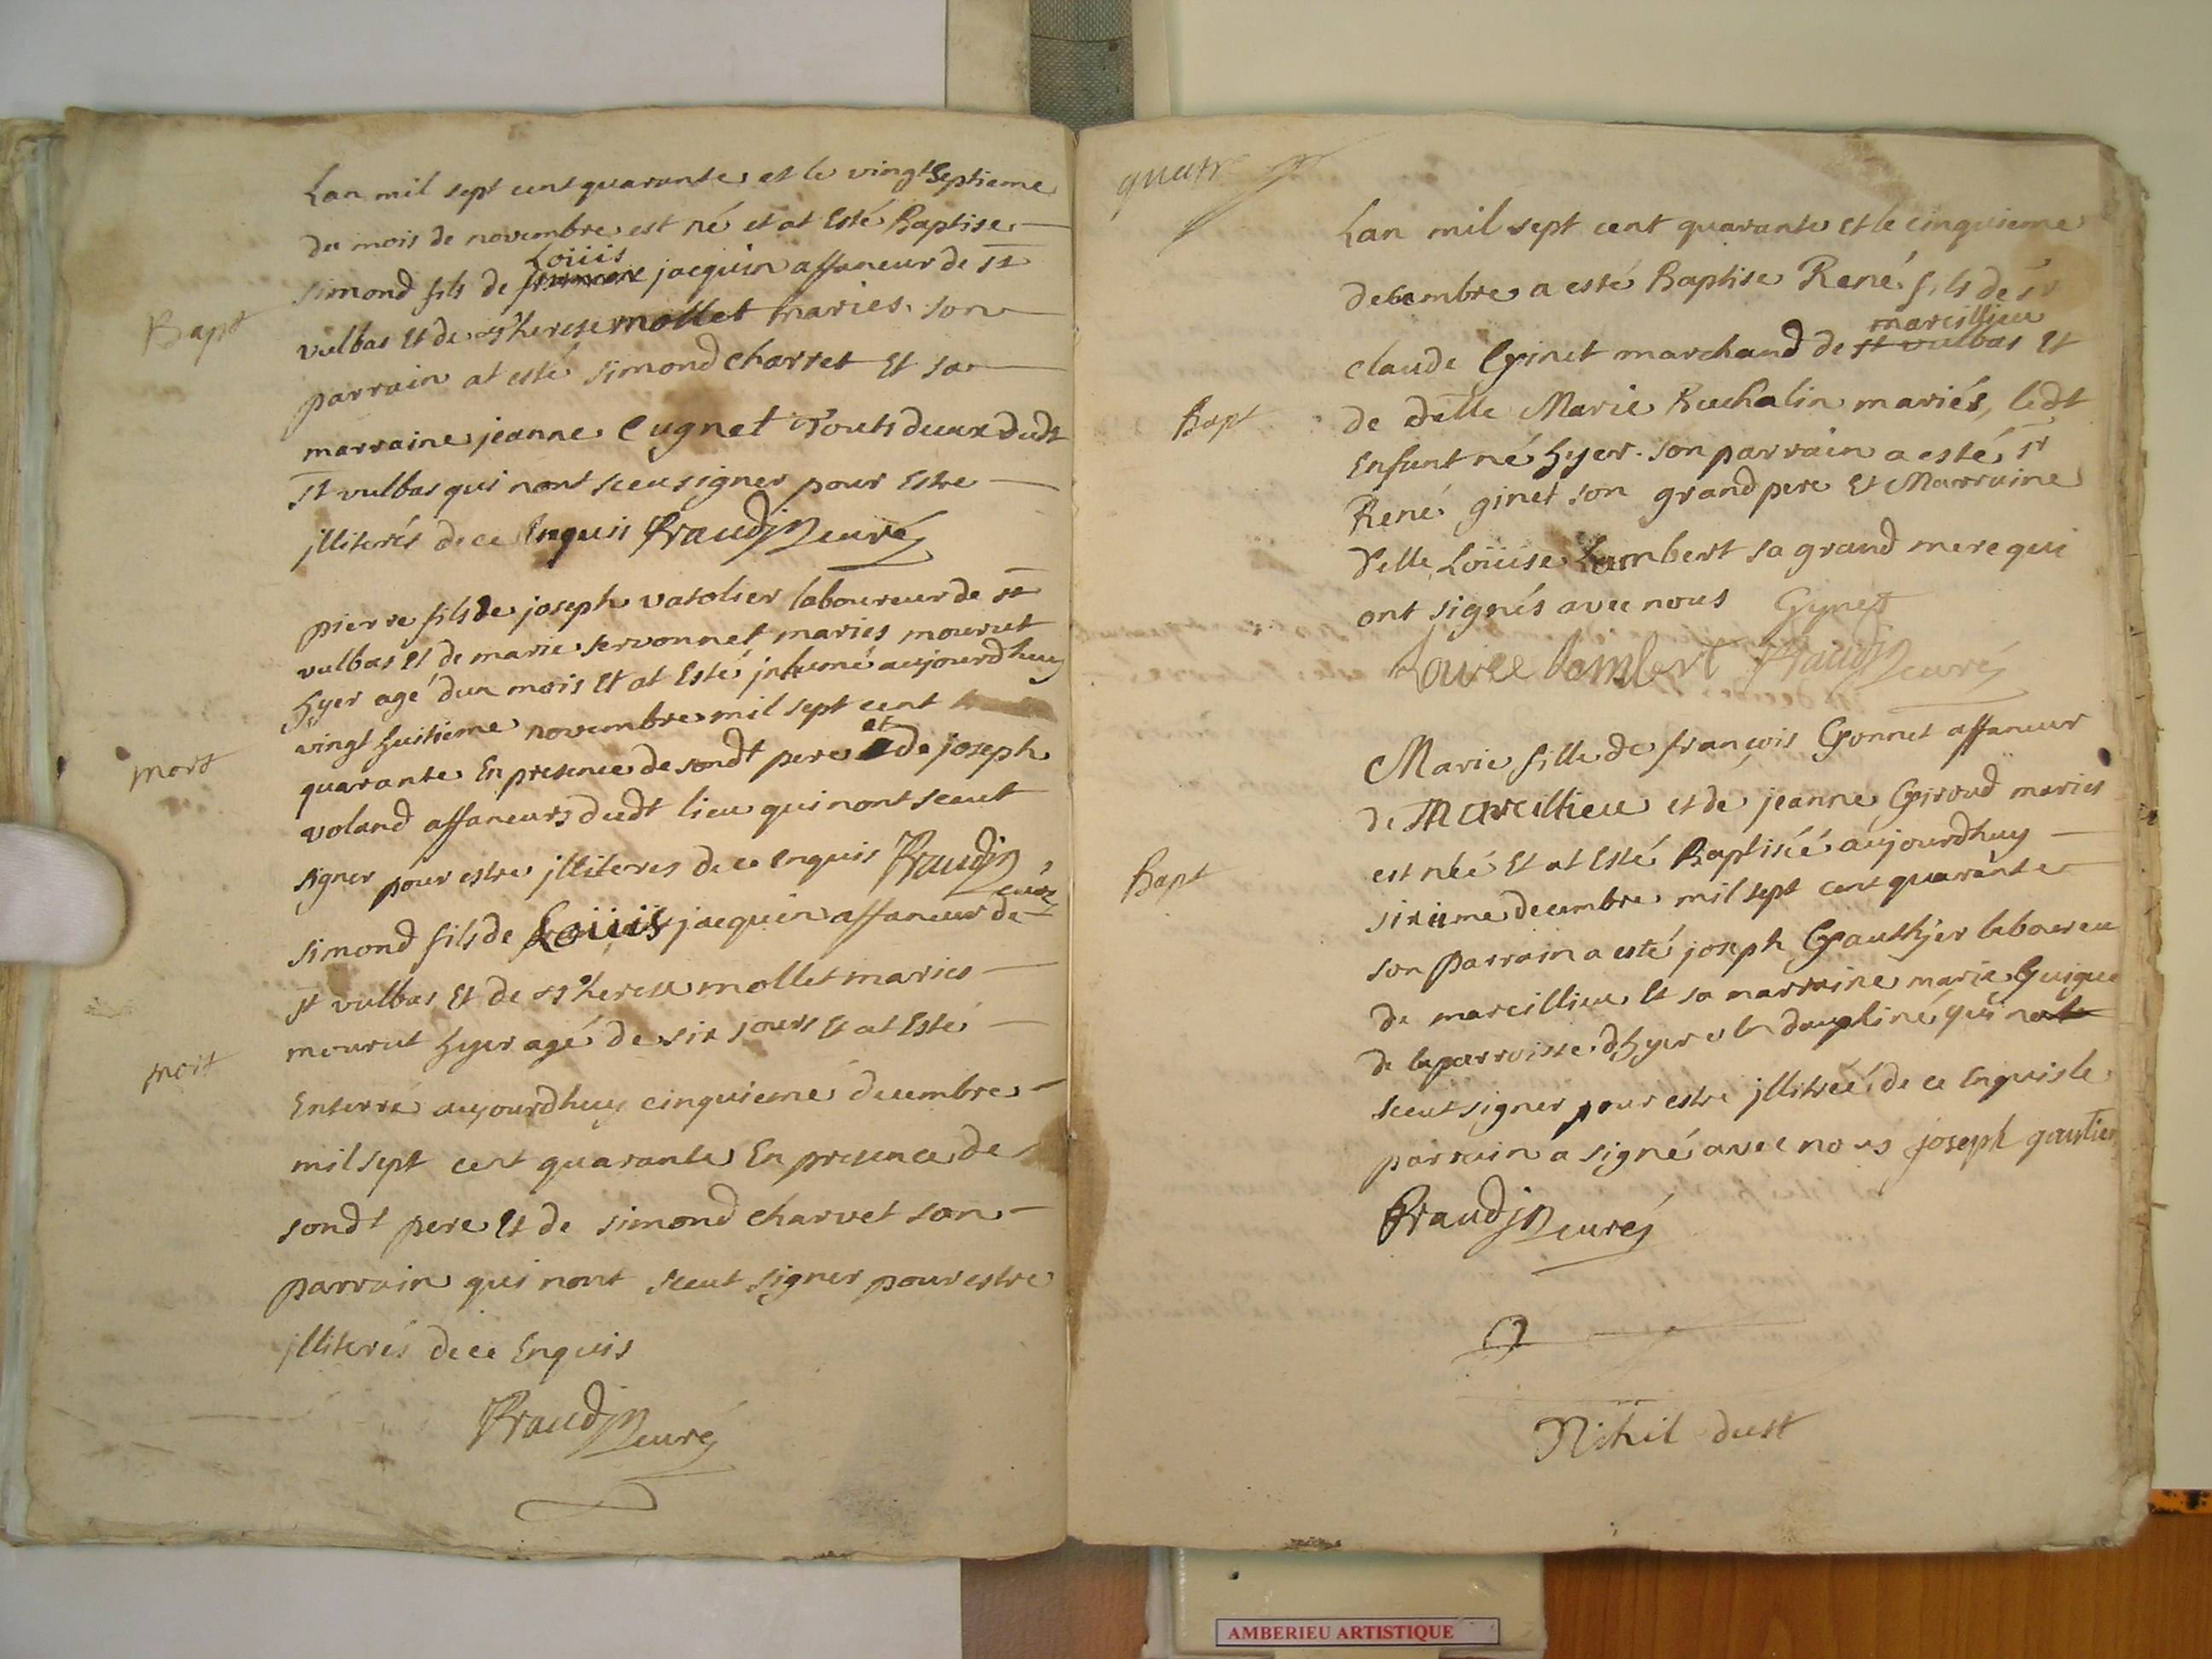 Lan mil sept cent quarante et le vingtseptieme
du mois de novembre est né et at Esté Baptise
Loüis
simond fils de jacquin affaneur de st
Bapt
vulbas Et de Therese mollet maries. son
parrain at esté simond charret Et sa
marraine jeanne Cugnet Touts deux dudt
st vulbas qui nont sceu signer pour Estre
jlliterés de ce Enquis Braudin curé
pierre fils de joseph vatolier laboureur de st
vulbas Et de marie servonnet maries mourut
hyer agé dun mois Et at Esté jnhumé aujourdhuy
vingt huitieme novembre mil sept cent
et
mort
quarante En presence de sondt pere de joseph
voland affaneurs dudt lieu qui nont sceut
signer pour estre jlliteres de ce enquis Braudin
curé
simond fils de Loüis jacquin affaneur de
st vulbas Et de Therese mollet maries
mourut hyer agé de six jours Et at Esté
mort
Enterré aujourdhuy cinquieme decembre
mil sept cent quarante En presence de
sondt pere Et de simond charvet son
parrain qui nont sceut signer pour estre
jlliterés de ce Enquis
Braudin curé
quatr
Lan mil sept cent quarante et le cinquieme
decembre a esté Baptise René fils de sr
marcillieu
claude Ginet marchand de st vulbas Et
Bapt
de delle Marie Ruchalin mariés, ledt
Enfant né hyer. son parrain a esté sr
René ginet son grand pere Et Marraine
delle Loüise Lambert sa grand mere qui
ont signés avec nous Gynet
Louise lambert Braudin curé
Marie fille de françois Gonnet affaneur
de Marcillieu et de jeanne Giroud maries
Bapt
est néé Et at Esté Baptiséé aujourdhuy
sixieme decembre mil sept cent quarante
son parrain a esté joseph Gauthjer laboureu
de marcillieu Et sa marraine marie Guigue
de la parroisse dhyer en dauphiné qui na
sceut signer pour estre jllitréé de ce Enquis le
parrain a signé avec nous joseph gautier
Braudin curé
Nihil dest
AMBERIEU ARTISTIQUE